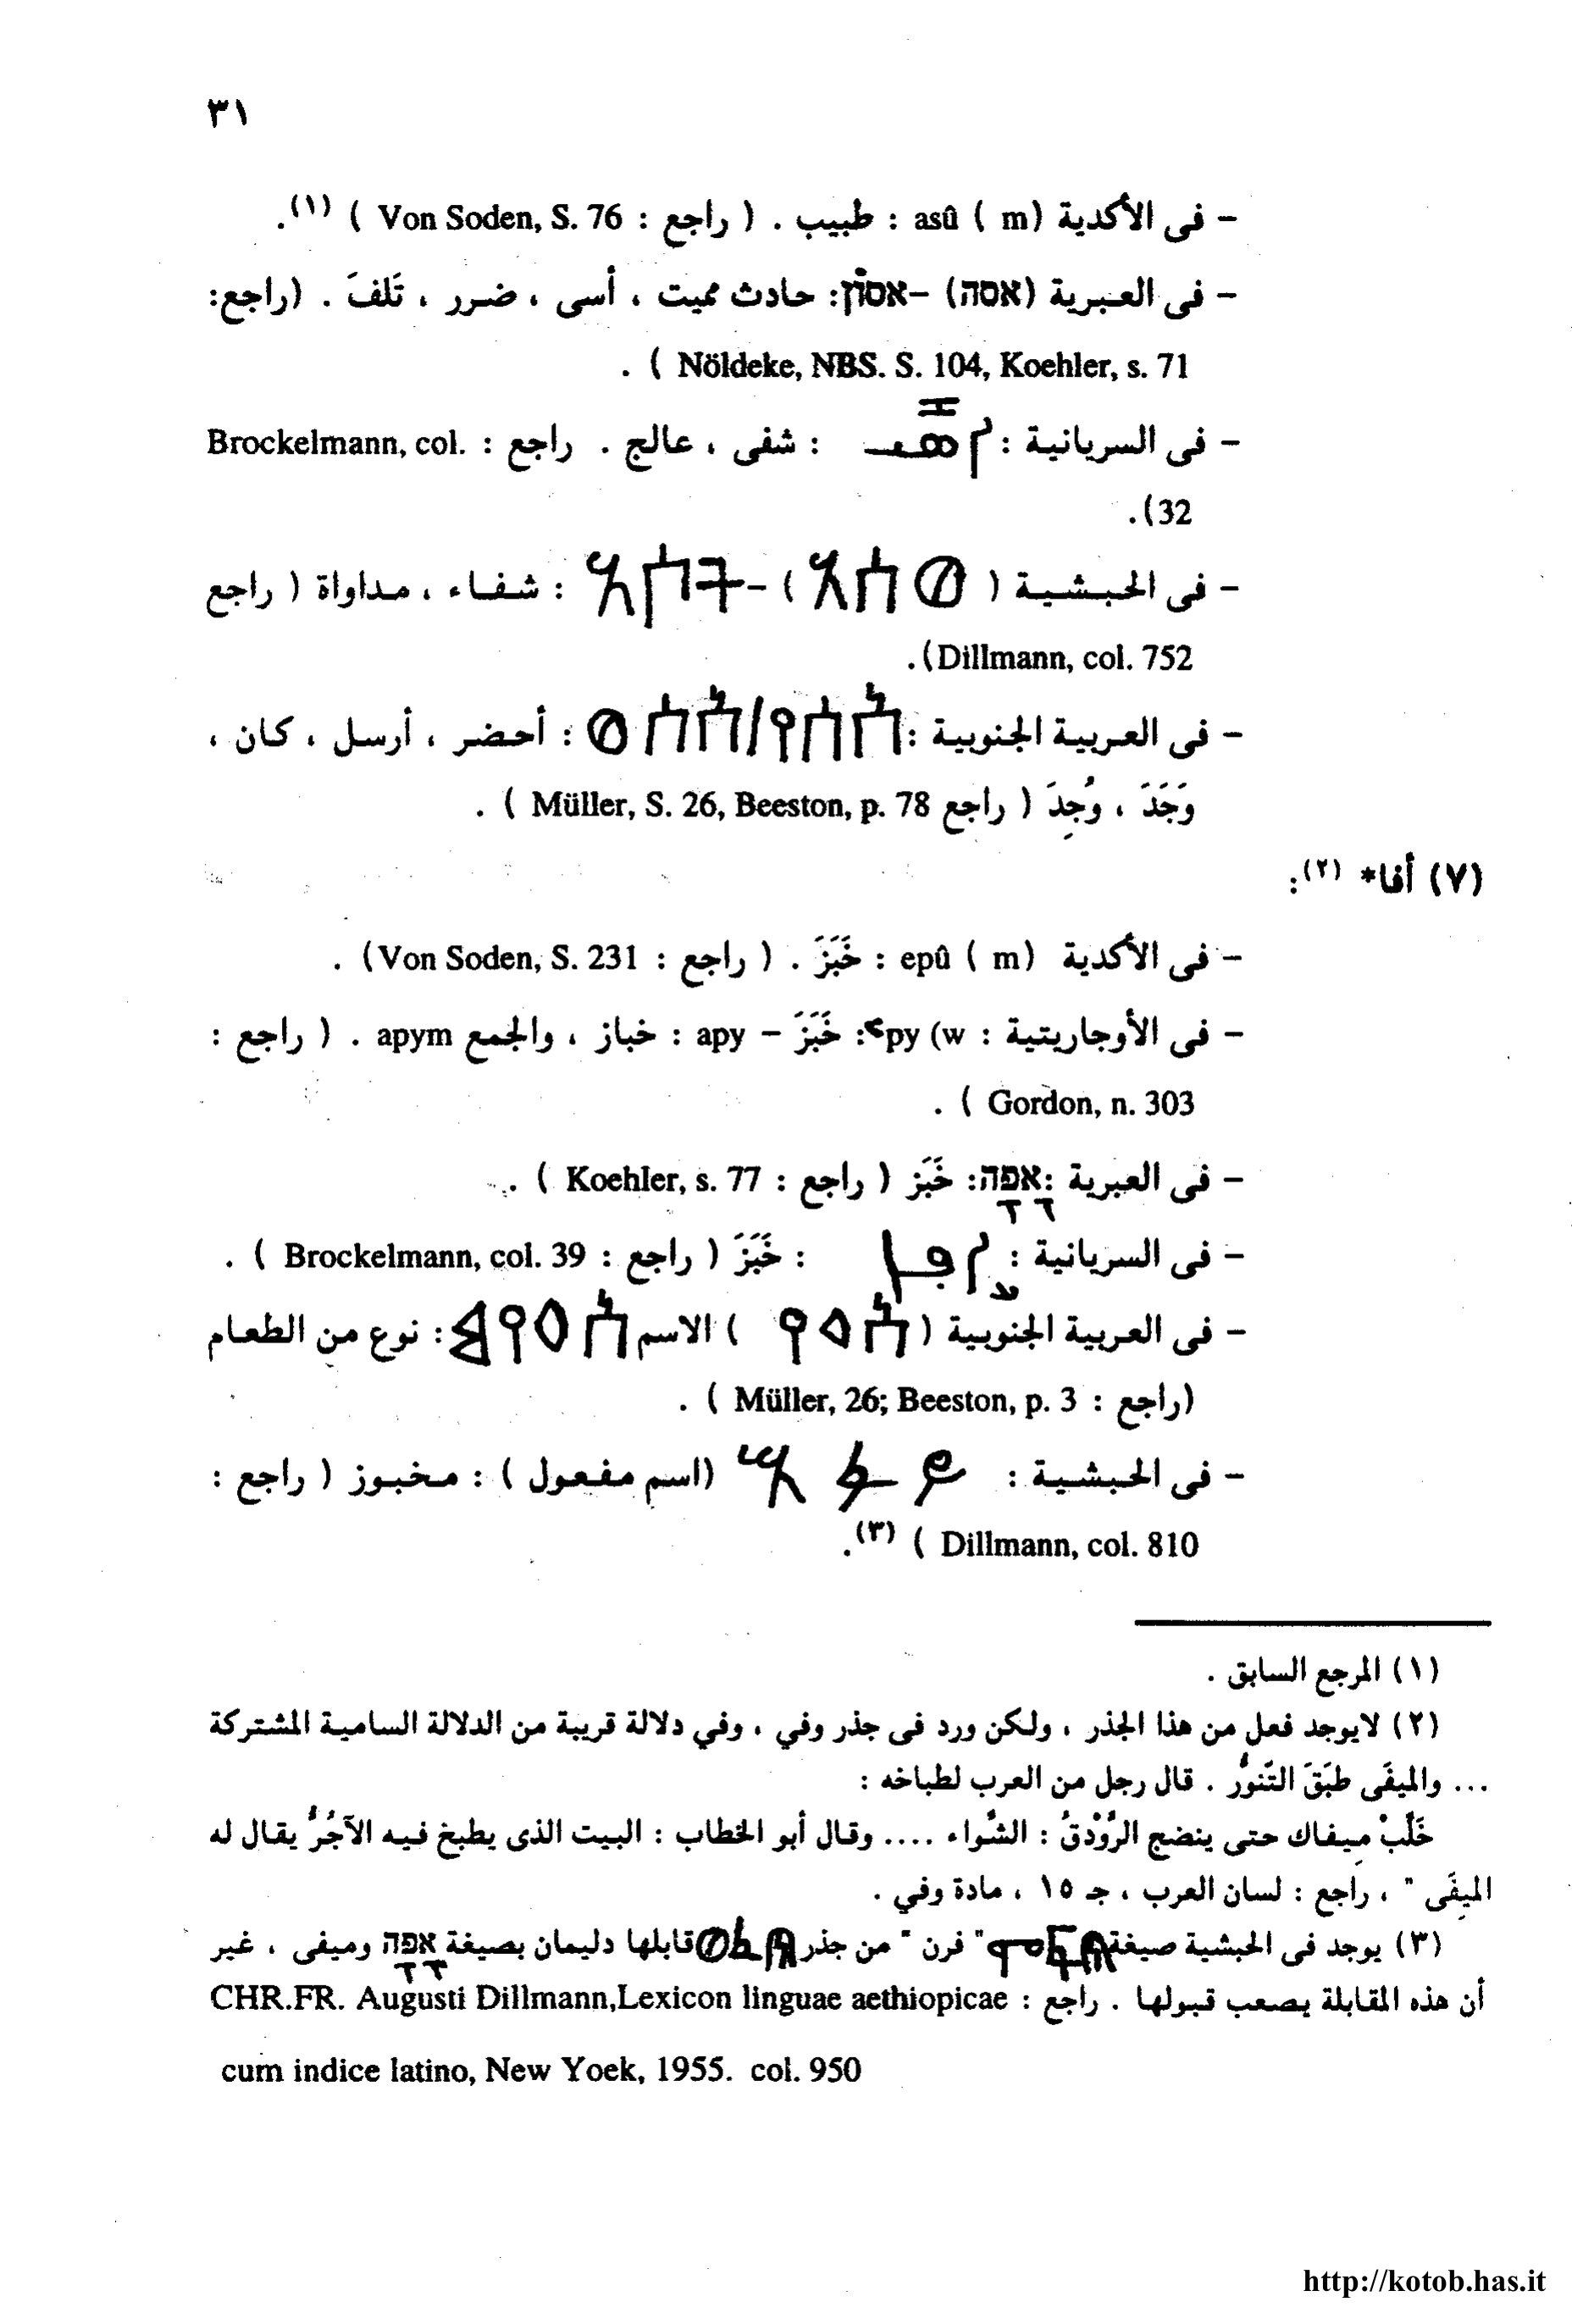 ٣١
– فى الأكدية asû ( m) : طبيب . ( راجع : Von Soden, S. 76 ) (١).
– فى العبرية (אסה) –אסוֹן: حادث مميت ، أسى ، ضرر ، تَلفَ . (راجع:
Nöldeke, NBS. S. 104, Koehler, s. 71 ) .
– فى السريانية : : شفى ، عالج . راجع : Brockelmann, col.
32).
– فى الحبشية ( ) – : شفاء ، مداواة ( راجع
Dillmann, col. 752).
– فى العربية الجنوبية : : أحضر ، أرسل ، كان ،
وَجَدَ ، وُجِدَ ( راجع Müller, S. 26, Beeston, p. 78 ) .
(٧) أفا* (٢):
– فى الأكدية epû ( m) : خَبَزَ . ( راجع : Von Soden, S. 231) .
– فى الأوجاريتية : py (w: خَبَزَ – apy : خباز ، والجمع apym . ( راجع :
Gordon, n. 303 ) .
– فى العبرية :אַפָה: خَبَز ( راجع : Koehler, s. 77 ) .
– فى السريانية : : خَبَزَ ( راجع : Brockelmann, col. 39 ) .
– فى العربية الجنوبية ( ) الاسم : نوع من الطعام
(راجع : Müller, 26; Beeston, p. 3 ) .
– فى الحبشية : (اسم مفعول ) : مخبوز ( راجع :
Dillmann, col. 810 ) (٣).
(١) المرجع السابق .
(٢) لايوجد فعل من هذا الجذر ، ولكن ورد فى جذر وفي ، وفي دلالة قريبة من الدلالة السامية المشتركة
... والميفَى طبَقَ التّنورُّ . قال رجل من العرب لطباخه :
خَلِّبْ مِيفاك حتى ينضج الرَّوْدقُ : الشَّواء .... وقال أبو الخطاب : البيت الذى يطبخ فيه الآجُرُّ يقال له
الميِفَى " ، راجع : لسان العرب ، جـ ١٥ ، مادة وفي .
(٣) يوجد فى الحبشية صيغة " فرن " من جذر قابلها دليمان بصيغة אפה وميفى ، غير
أن هذه المقابلة يصعب قبولها . راجع : CHR.FR. Augusti Dillmann,Lexicon linguae aethiopicae
cum indice latino, New Yoek, 1955. col. 950
http://kotob.has.it